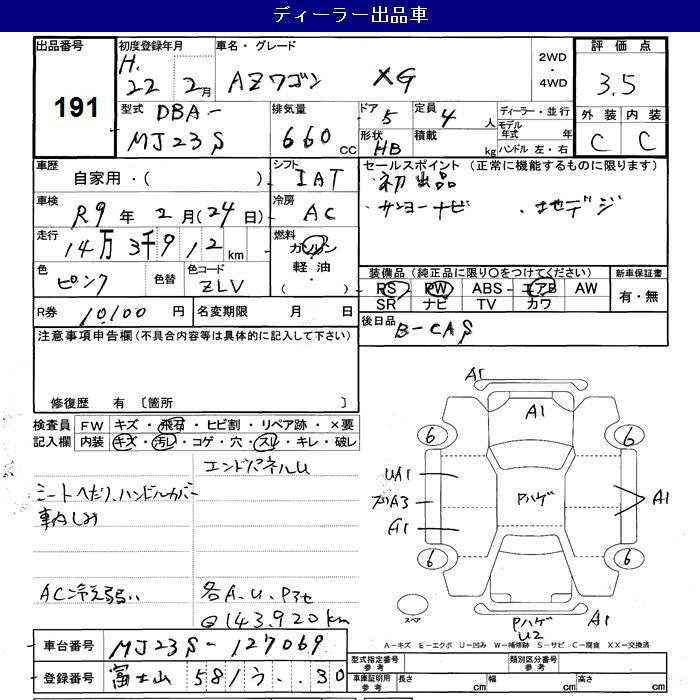 ディーラー出品車
出品番号
191
初度登録年月
H.
22 2月
車名・グレード
AZワゴン XG
2WD
・
4WD
評価点
3.5
外装 内装
C C
型式 DBA-
MJ23S
排気量
660 CC
ドア 5
定員 4 人
形状 HB
積載 kg
ディーラー・並行
モデル
年式 年
ハンドル 左・右
車歴
自家用・( )
シフト
IAT
車検
R9年 2月(24日)
冷房
AC
走行
14万3千912km
燃料
ガソリン
・
軽油
・
( )
色
ピンク
色替
色コード
ZLV
R券 10,100 円
名変期限 月 日
セールスポイント(正常に機能するものに限ります)
初出品
・サンヨーナビ ・地デジ
装備品(純正品に限り○をつけてください)
PS PW ABS エアB AW
SR ナビ TV カワ
新車保証書
有・無
後日品
B-CAS
注意事項申告欄(不具合内容等は具体的に記入して下さい)
修復歴 有 〔箇所 〕
検査員
記入欄
FW キズ・飛石・ヒビ割・リペア跡・×要
内装 キズ・汚レ・コゲ・穴・スレ・キレ・破レ
エンドパネルU
シートヘたり、ハンドルカバー
車内しみ
AC冷え弱い
各A.U.P3セ
◎143,920km
A1
A1
6 6
UA1
A3
A1
Pハゲ
A1
6 6
スペア
Pハゲ
U2
A1
A-キズ E-エクボ U-凹み W-補修跡 S-サビ C-腐食 XX-交換済
車台番号 MJ23S-127069
登録番号 富士山 581 う ・・30
型式指定番号
参考
類別区分番号
参考
車庫証明用
参考
長さ cm
幅 cm
高さ cm